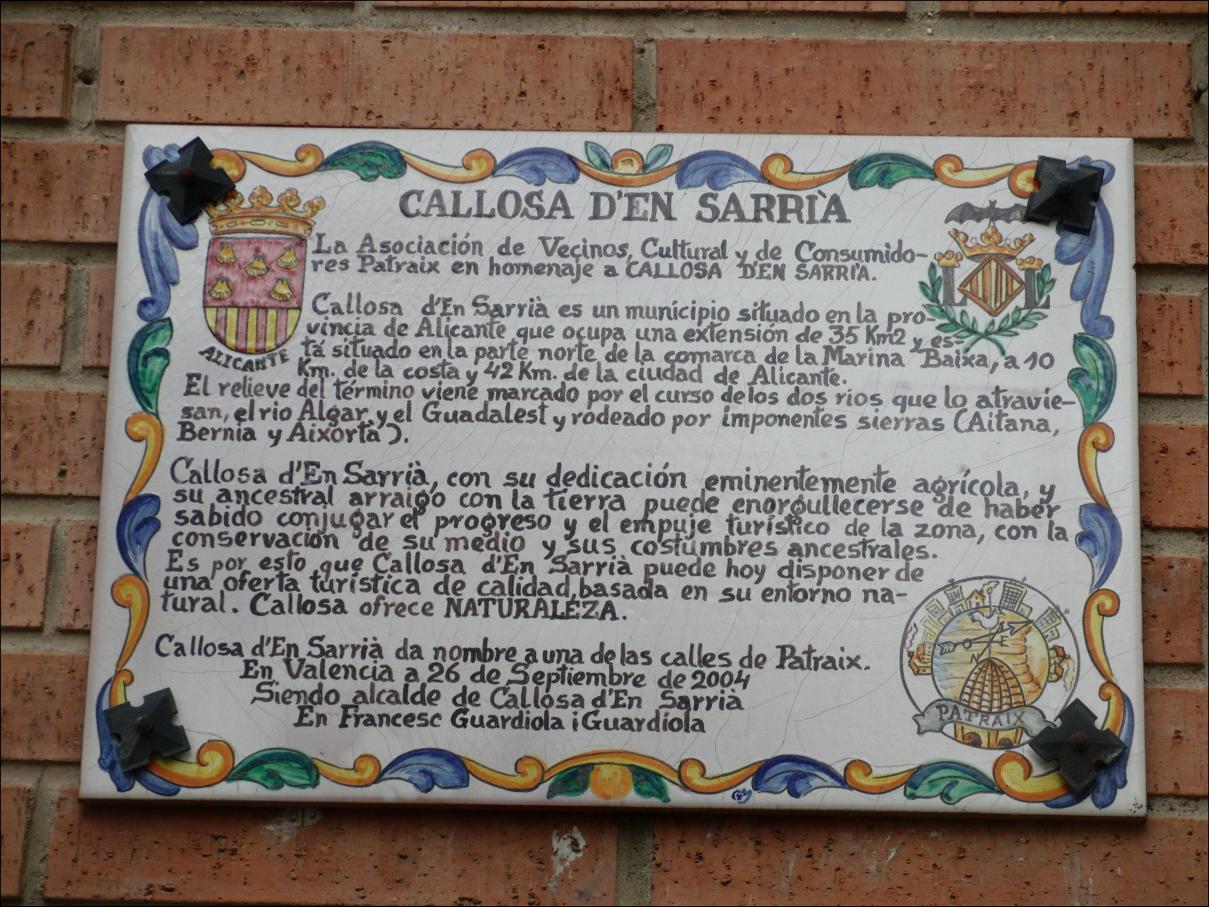 CALLOSA D'EN SARRIÀ
La Asociación de Vecinos, Cultural y de Consumido-
res Patraix en homenaje a CALLOSA D'EN SARRIÀ.
Callosa d'En Sarrià es un municipio situado en la pro-
vincia de Alicante que ocupa una extensión de 35 Km2 y es-
tá situado en la parte norte de la comarca de la Marina Baixa, a 10
Km. de la costa y 42 Km. de la ciudad de Alicante.
El relieve del término viene marcado por el curso de los dos rios que lo atravie-
san, el rio Algar y el Guadalest y rodeado por imponentes sierras (Aitana,
Bernia y Aixorta).
Callosa d'En Sarrià, con su dedicación eminentemente agrícola, y
su ancestral arraigo con la tierra puede enorgullecerse de haber
sabido conjugar el progreso y el empuje turístico de la zona, con la
conservación de su medio y sus costumbres ancestrales.
Es por esto que Callosa d'En Sarrià puede hoy disponer de
una oferta turística de calidad, basada en su entorno na-
tural. Callosa ofrece NATURALEZA.
Callosa d'En Sarrià da nombre a una de las calles de Patraix.
En Valencia a 26 de Septiembre de 2004
Siendo alcalde de Callosa d'En Sarrià
En Francesc Guardiola i Guardiola
ALICANTE
L L
N
PATRAIX